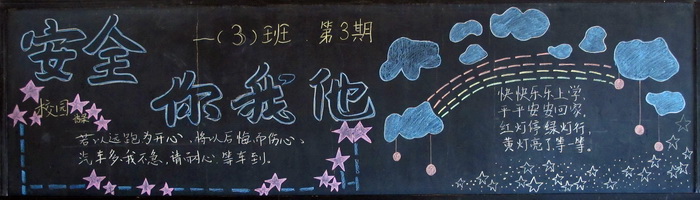 安全
一(3)班 第3期
你我他
校园
若以逗跑为开心,将以后悔而伤心。
汽车多,我不急,请耐心,等车到。
快快乐乐上学,
平平安安回家,
红灯停绿灯行,
黄灯亮了等一等。